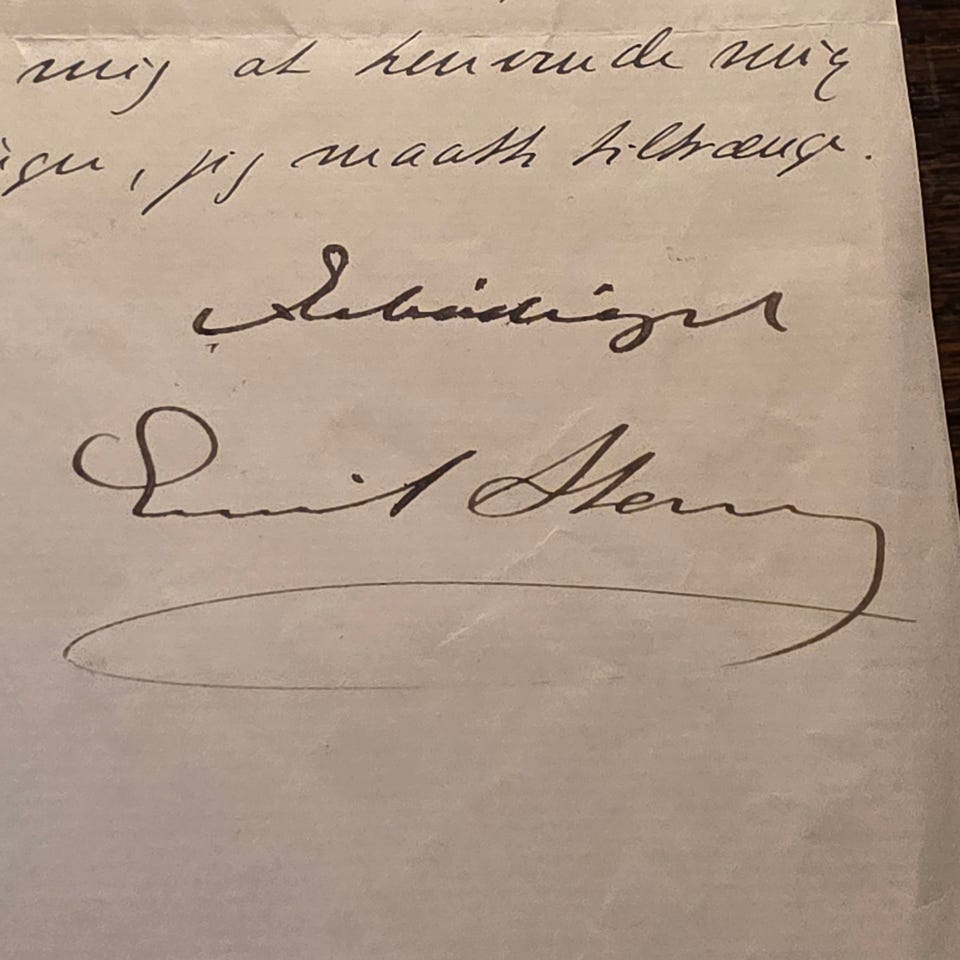 mig at henvende mig
, jeg maatte tiltrænge.
Ærbødigst
Emil Stern